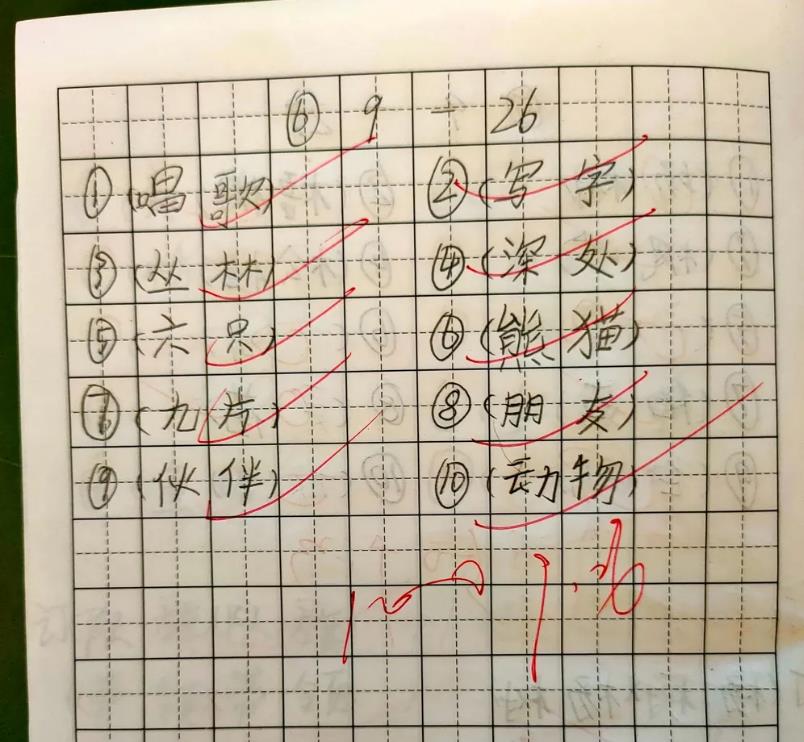 ⑥ 9 — 26
①(唱歌) ②(写字)
③(丛林) ④(深处)
⑤(六只) ⑥(熊猫)
⑦(九片) ⑧(朋友)
⑨(伙伴) ⑩(动物)
100